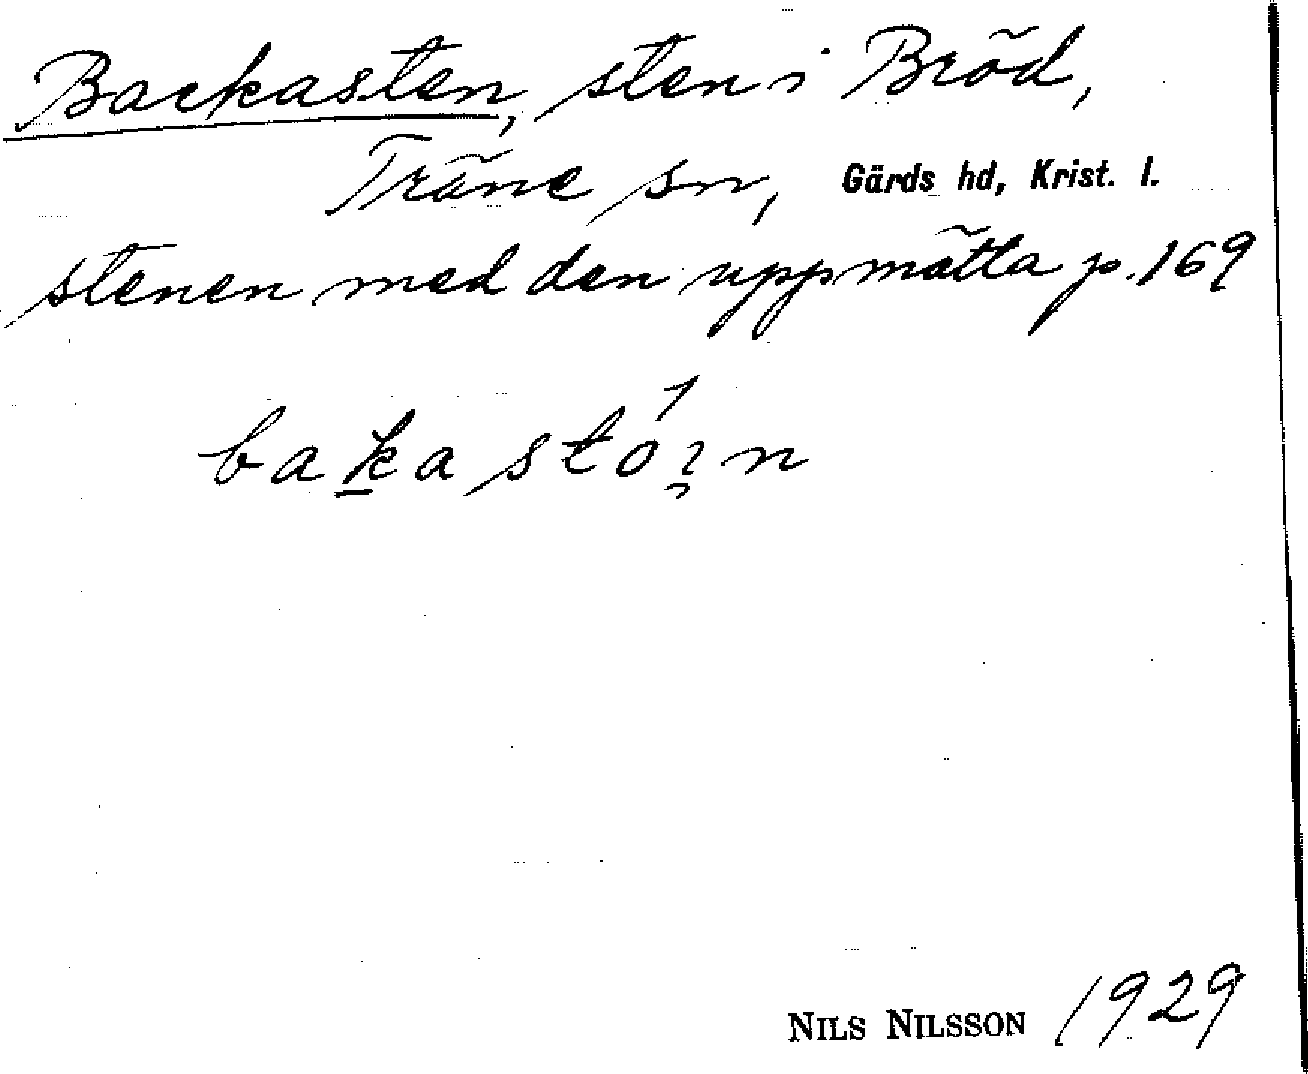 Backasten, sten i Bröd,
Träne sn, Gärds hd, Krist. l.
stenen med den uppmätta p. 169
bakastóın
NILS NILSSON 1929